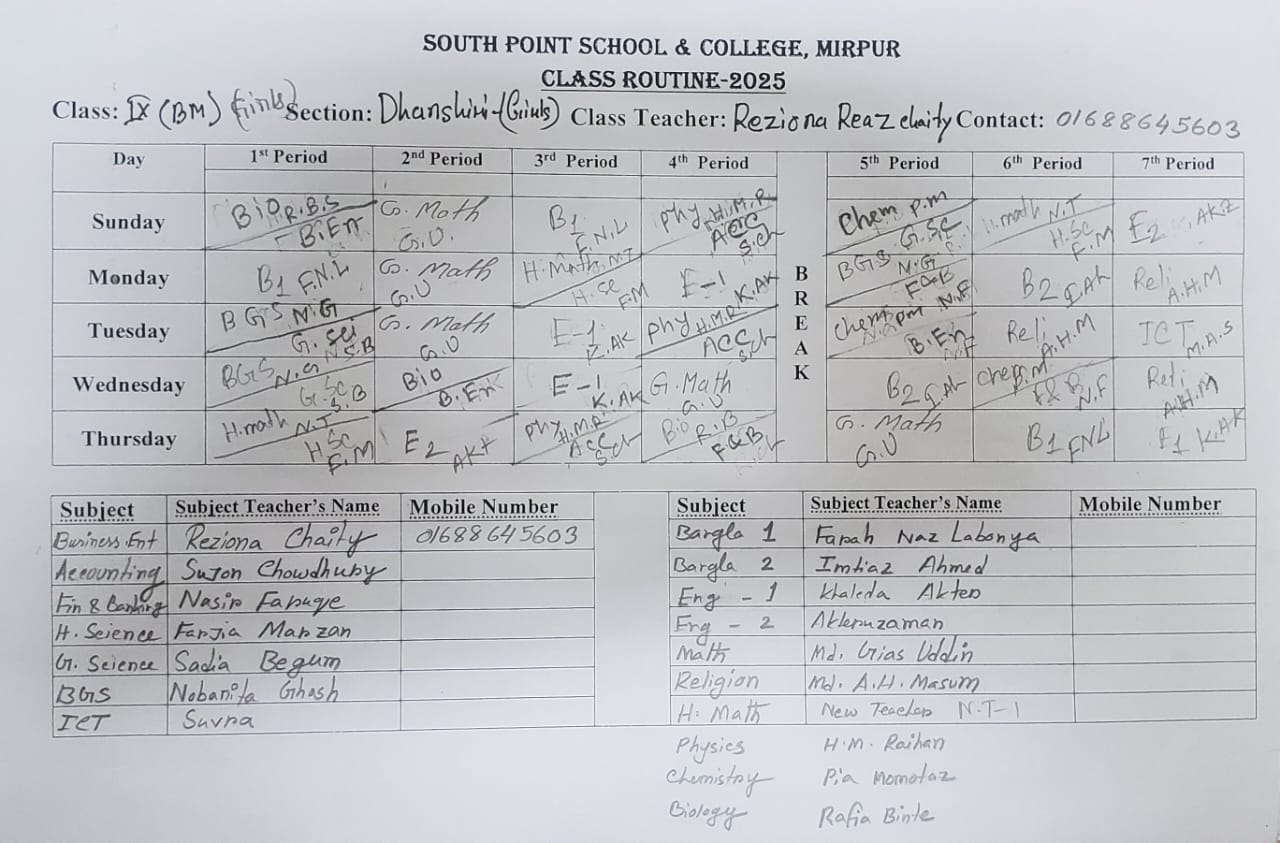 SOUTH POINT SCHOOL & COLLEGE, MIRPUR
CLASS ROUTINE-2025
Class: IX (BM) Girls) Section: Dhanshiri-(Girls) Class Teacher: Reziona Reaz chaity Contact: 01688645603
Day 1st Period 2nd Period 3rd Period 4th Period BREAK 5th Period 6th Period 7th Period
Sunday Bio R.B.S B.En G. Math G.U. B1 F.N.L Phy H.M.R ACC S.ch Chem P.m G.Sc H.math N.T H.Sc F.M E2 AKZ
Monday B1 F.N.L G. Math G.U H.Math. N.T H.Sc F.M E-1 K.AK BGS N.G F&B N.F B2 I.Ah Reli A.H.M
Tuesday BGS N.G G. Sci S.B G. Math G.U E-1 K.AK Phy H.M.R ACC S.ch Chem Pm B.En Reli A.H.M ICT M.A.S
Wednesday BGS N.G G.Sc S.B Bio B.En E-1 K.AK G.Math G.U B2 I.Ah Chem P.M F&B N.F Reli A.H.M
Thursday H.math N.T H.Sc F.M E2 AKZ Phy H.M.R ACC S.ch Bio R.B F&B G. Math G.U B1 FNL E1 K.AK
Subject Subject Teacher's Name Mobile Number
Business.Ent Reziona Chaity 01688645603
Accounting Sujon Chowdhury
Fin & Banking Nasir Faruqe
H. Science Farjia Marzan
G. Science Sadia Begum
BGS Nobanita Ghosh
ICT Suvra
Subject Subject Teacher's Name Mobile Number
Bangla 1 Farah Naz Labonya
Bangla 2 Imtiaz Ahmed
Eng - 1 Khaleda Akter
Eng - 2 Akteruzaman
Math Md. Gias Uddin
Religion Md. A.H. Masum
H. Math New Teacher N.T-1
Physics H.M. Raihan
Chemistry Pia Momotaz
Biology Rafia Binte